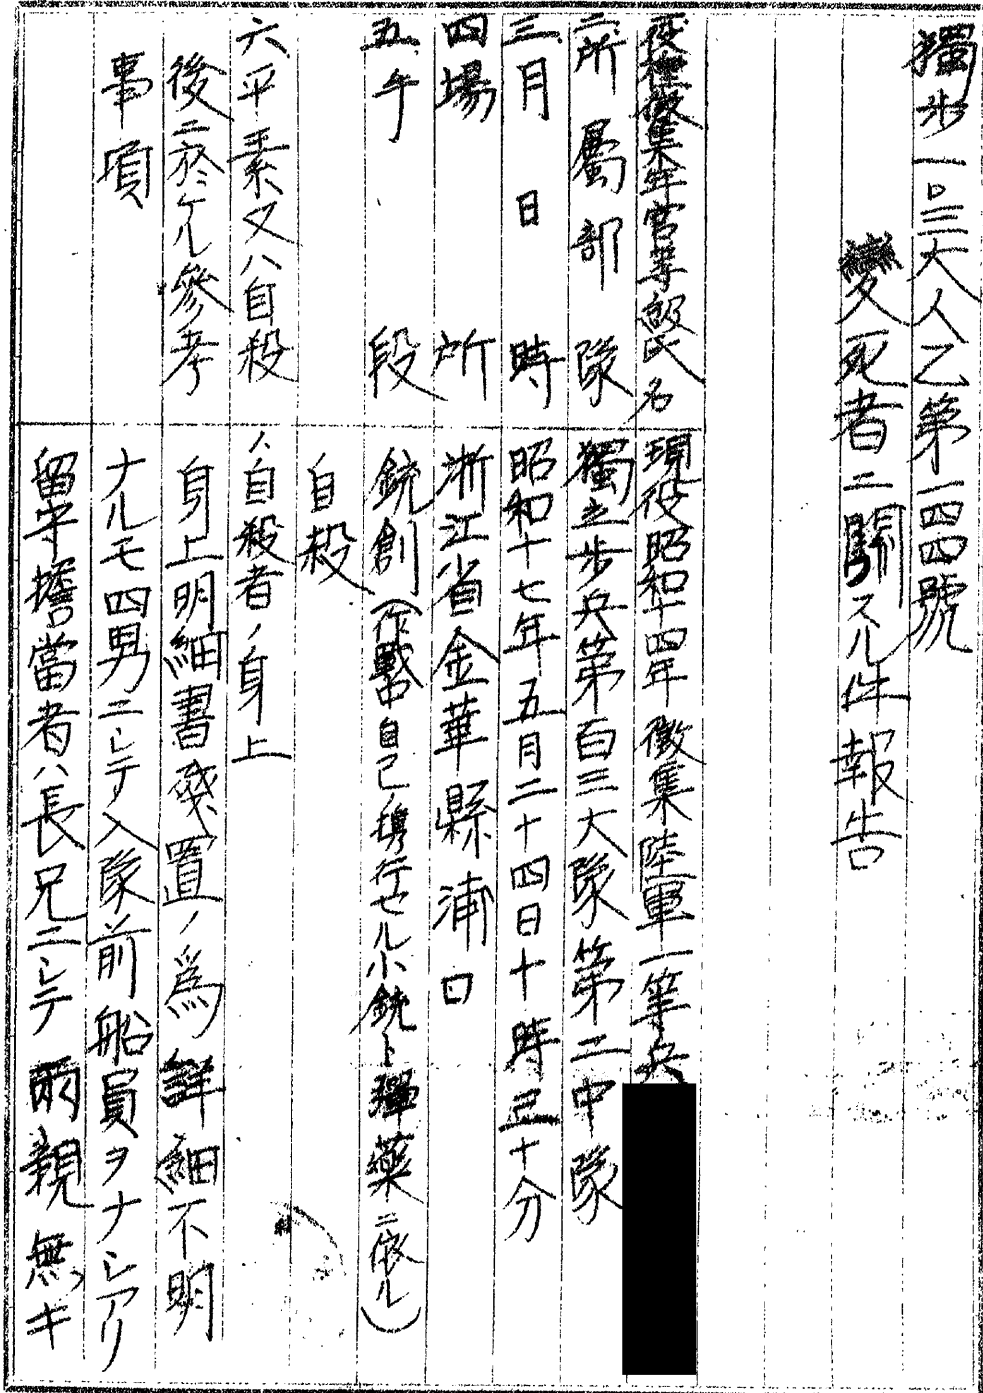 獨歩一〇三大人乙第一四四號
變死者ニ關スル件報告
役種徴集年官等級氏名 現役昭和十四年徴集陸軍一等兵
二所屬部隊 獨立歩兵第百三大隊第二中隊
三月日時 昭和十七年五月二十四日十時三十分
四場所 浙江省金華縣浦口
五手段 銃創(作戰中自己ノ携行セル小銃ト彈藥ニ依ル)
自殺
六平素又ハ自殺 1、自殺者ノ身上
後ニ於ケル參考 身上明細書殘置ノ爲詳細不明
事項 ナルモ四男ニシテ入隊前船員ヲナシアリ
留守擔當者ハ長兄ニシテ両親無キ